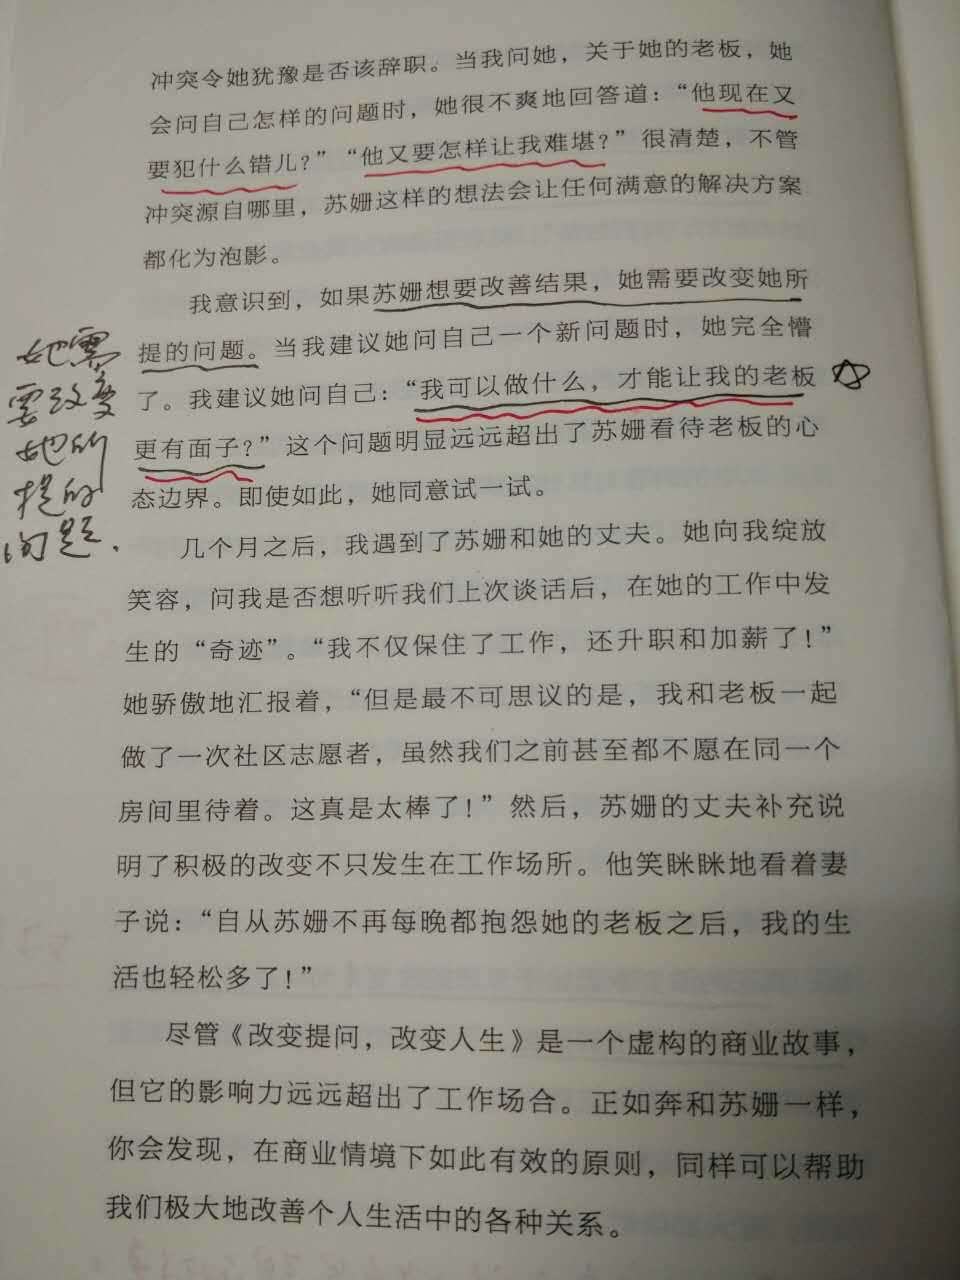 冲突令她犹豫是否该辞职。当我问她，关于她的老板，她
会问自己怎样的问题时，她很不爽地回答道：“他现在又
要犯什么错儿？”“他又要怎样让我难堪？”很清楚，不管
冲突源自哪里，苏姗这样的想法会让任何满意的解决方案
都化为泡影。
我意识到，如果苏姗想要改善结果，她需要改变她所
提的问题。当我建议她问自己一个新问题时，她完全懵
了。我建议她问自己：“我可以做什么，才能让我的老板
更有面子？”这个问题明显远远超出了苏姗看待老板的心
态边界。即使如此，她同意试一试。
几个月之后，我遇到了苏姗和她的丈夫。她向我绽放
笑容，问我是否想听听我们上次谈话后，在她的工作中发
生的“奇迹”。“我不仅保住了工作，还升职和加薪了！”
她骄傲地汇报着，“但是最不可思议的是，我和老板一起
做了一次社区志愿者，虽然我们之前甚至都不愿在同一个
房间里待着。这真是太棒了！”然后，苏姗的丈夫补充说
明了积极的改变不只发生在工作场所。他笑眯眯地看着妻
子说：“自从苏姗不再每晚都抱怨她的老板之后，我的生
活也轻松多了！”
尽管《改变提问，改变人生》是一个虚构的商业故事，
但它的影响力远远超出了工作场合。正如奔和苏姗一样，
你会发现，在商业情境下如此有效的原则，同样可以帮助
我们极大地改善个人生活中的各种关系。
她需
要改变
她所
提的
问题.